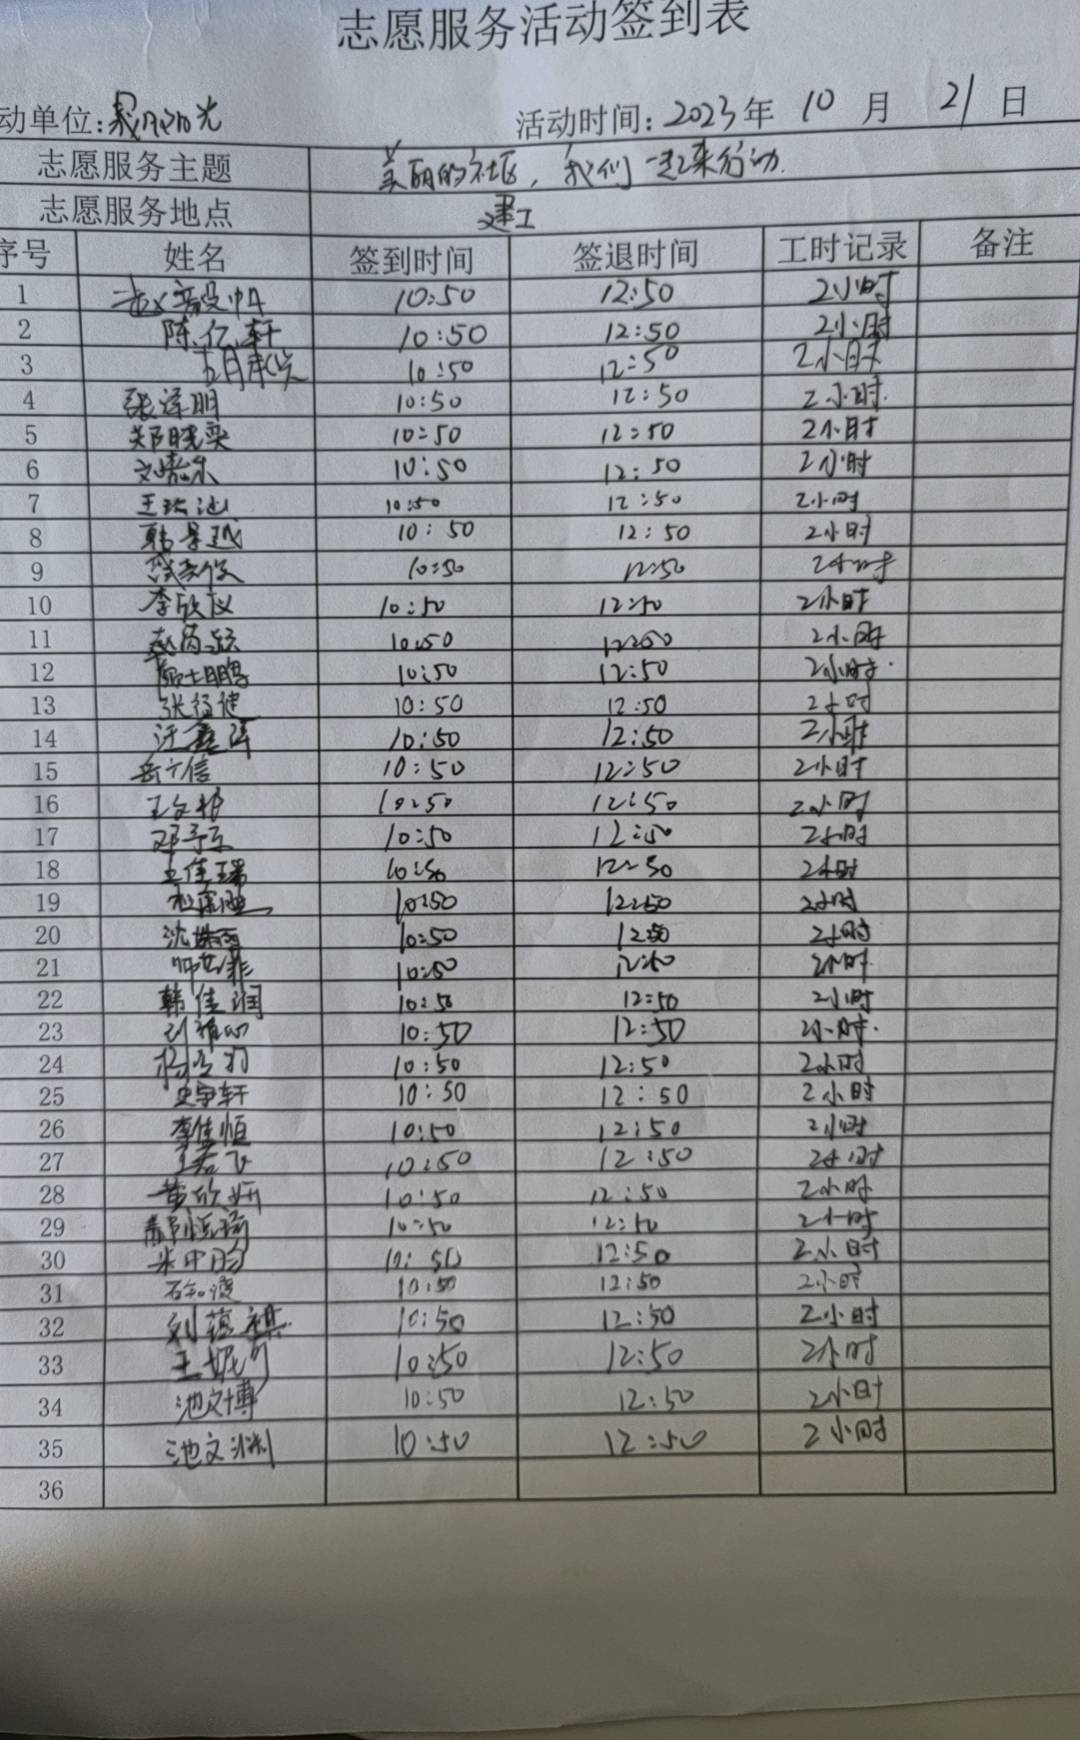 志愿服务活动签到表
动单位: 晨风阳光 活动时间: 2023年 10 月 21 日
志愿服务主题 美丽的社区，我们一起来行动.
志愿服务地点 建工
序号 姓名 签到时间 签退时间 工时记录 备注
1 10:50 12:50 2小时
2 陈亿轩 10:50 12:50 2小时
3 10:50 12:50 2小时
4 张泽明 10:50 12:50 2小时.
5 郑晓奕 10:50 12:50 2小时
6 刘嘉乐 10:50 12:50 2小时
7 10:50 12:50 2小时
8 韩景越 10:50 12:50 2小时
9 10:50 12:50 2小时
10 李欣仪 10:50 12:50 2小时
11 10:50 12:50 2小时
12 10:50 12:50 2小时.
13 10:50 12:50 2小时
14 10:50 12:50 2小时
15 10:50 12:50 2小时
16 10:50 12:50 2小时
17 邓予乐 10:50 12:50 2小时
18 王佳瑞 10:50 12:50 2小时
19 10:50 12:50 2小时
20 10:50 12:50 2小时
21 10:50 12:50 2小时
22 韩佳润 10:50 12:50 2小时
23 10:50 12:50 2小时.
24 10:50 12:50 2小时
25 史宇轩 10:50 12:50 2小时
26 李佳恒 10:50 12:50 2小时
27 王若飞 10:50 12:50 2小时
28 黄欣妍 10:50 12:50 2小时
29 10:50 12:50 2小时
30 10:50 12:50 2小时
31 10:50 12:50 2小时
32 刘蕴祺 10:50 12:50 2小时
33 王婉可 10:50 12:50 2小时
34 池文博 10:50 12:50 2小时
35 池文渊 10:50 12:50 2小时
36